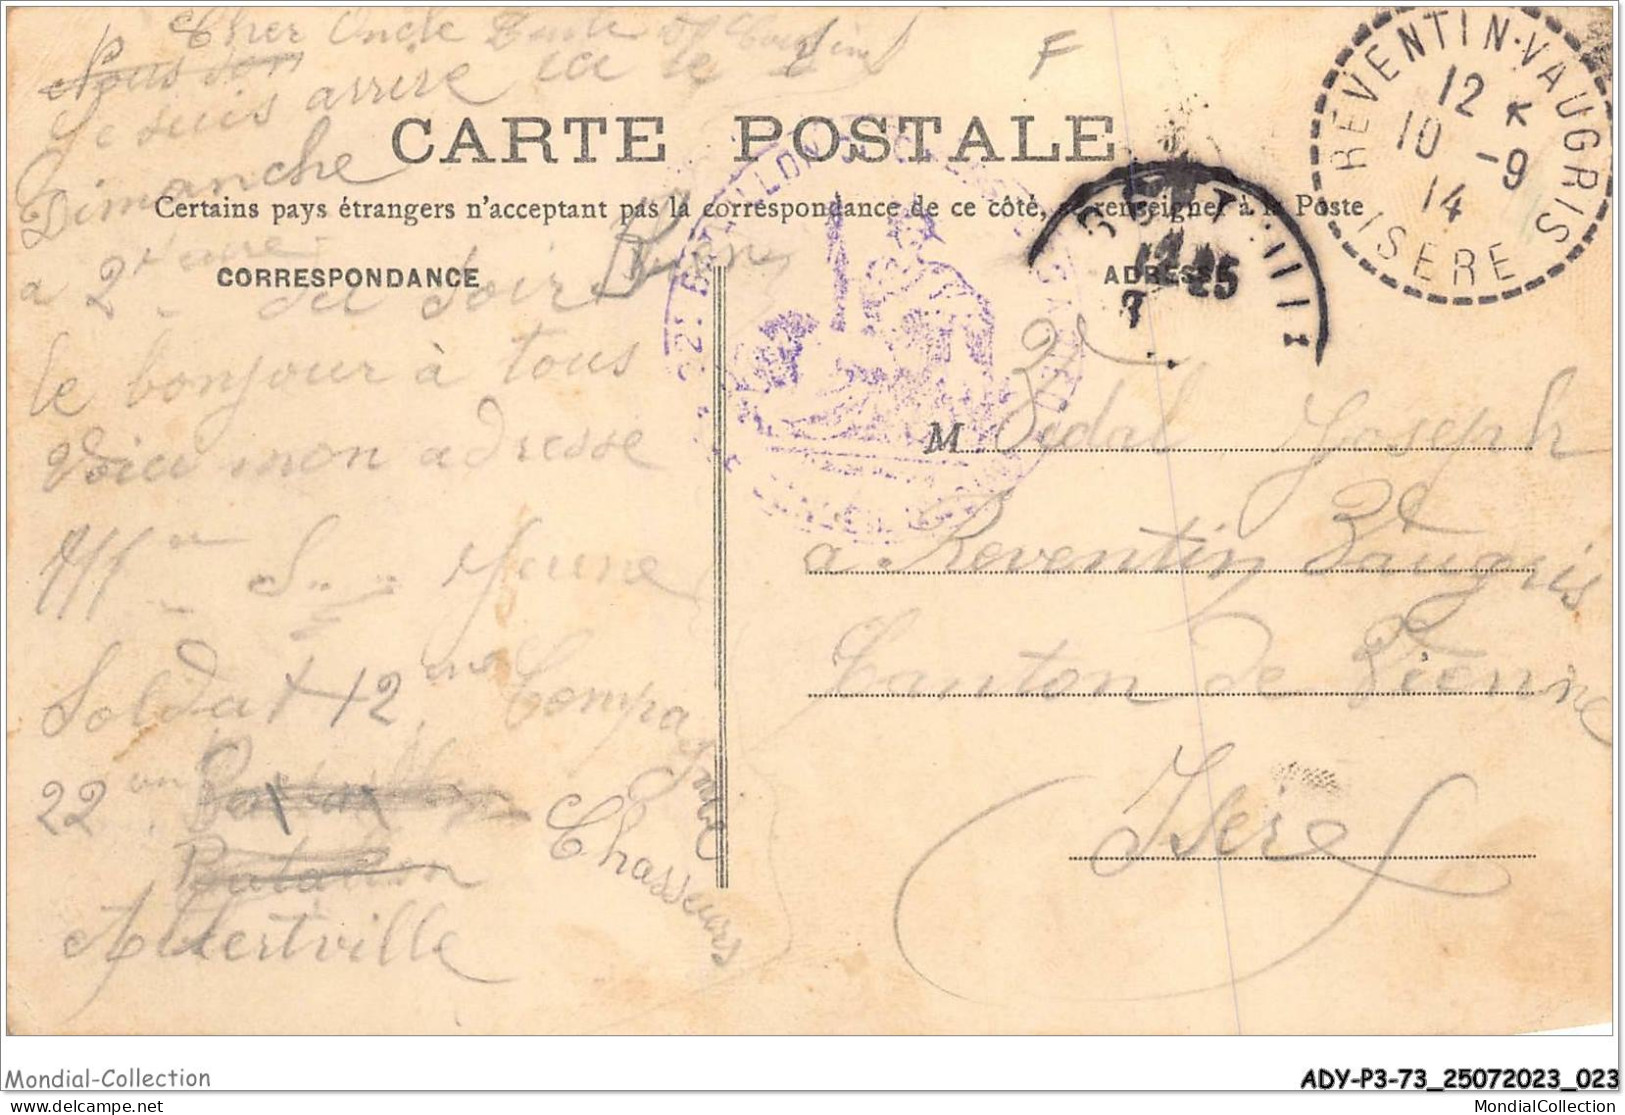 Cher Oncle Tante et Cousins
Nous son
Je suis arrire ici le
Dimanche
a 2 heure
du soir Bien
le bonjour à tous
Voici mon adresse
Soldat 12 em Compagnie
22 em
Batallon
Chasseurs
Albertville
F
CARTE POSTALE
Certains pays étrangers n'acceptant pas la correspondance de ce côté, se renseigner à la Poste
CORRESPONDANCE
ADRESSE
REVENTIN-VAUGRIS
12 K
10 -9
14
ISERE
22E BATAILLON DE CHASSEURS
M Vidal Joseph
a Reventin Vaugris
Canton de Vienne
Isere
Mondial-Collection
ADY-P3-73_25072023_023
delcampe.net
MondialCollection